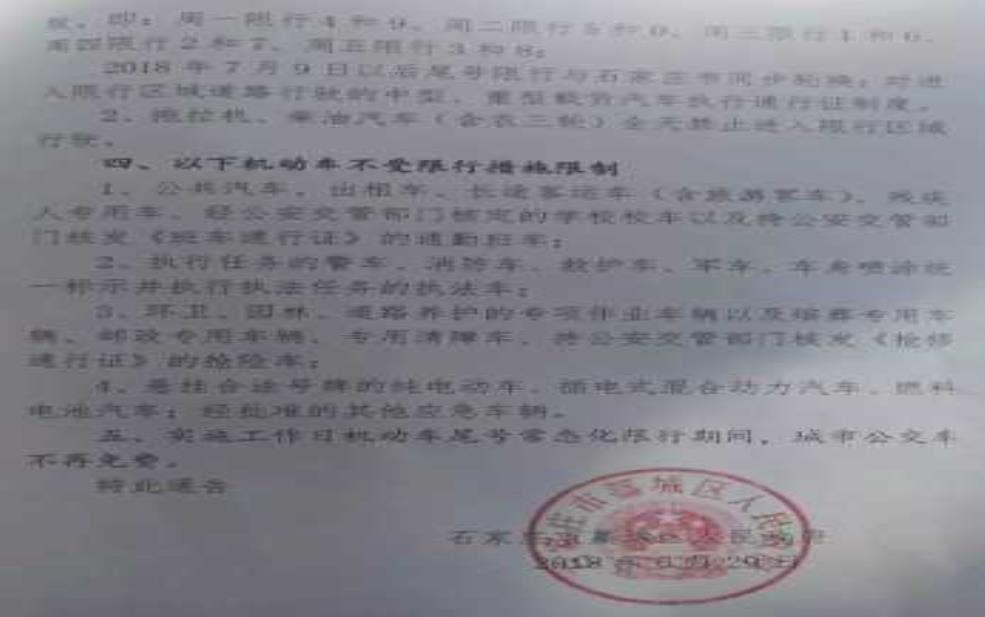 即：周一限行4和9、周二限行5和0、周三限行1和6、
周四限行2和7、周五限行3和8；
2018年7月9日以后尾号限行与石家庄市同步轮换；对进
入限行区域道路行驶的中型、重型载货汽车执行通行证制度。
2、拖拉机、柴油汽车（含农三轮）全天禁止进入限行区域
行驶。
四、以下机动车不受限行措施限制
1、公共汽车、出租车、长途客运车（含旅游客车）、残疾
人专用车、经公安交管部门核定的学校校车以及持公安交管部
门核发《班车通行证》的通勤班车；
2、执行任务的警车、消防车、救护车、军车、车身喷涂统
一标示并执行执法任务的执法车；
3、环卫、园林、道路养护的专项作业车辆以及殡葬专用车
辆、邮政专用车辆、专用清障车、持公安交管部门核发《抢修
通行证》的抢险车；
4、悬挂合法号牌的纯电动车、插电式混合动力汽车、燃料
电池汽车；经批准的其他应急车辆。
五、实施工作日机动车尾号常态化限行期间，城市公交车
不再免费。
特此通告
石家庄市藁城区人民政府
2018年6月29日